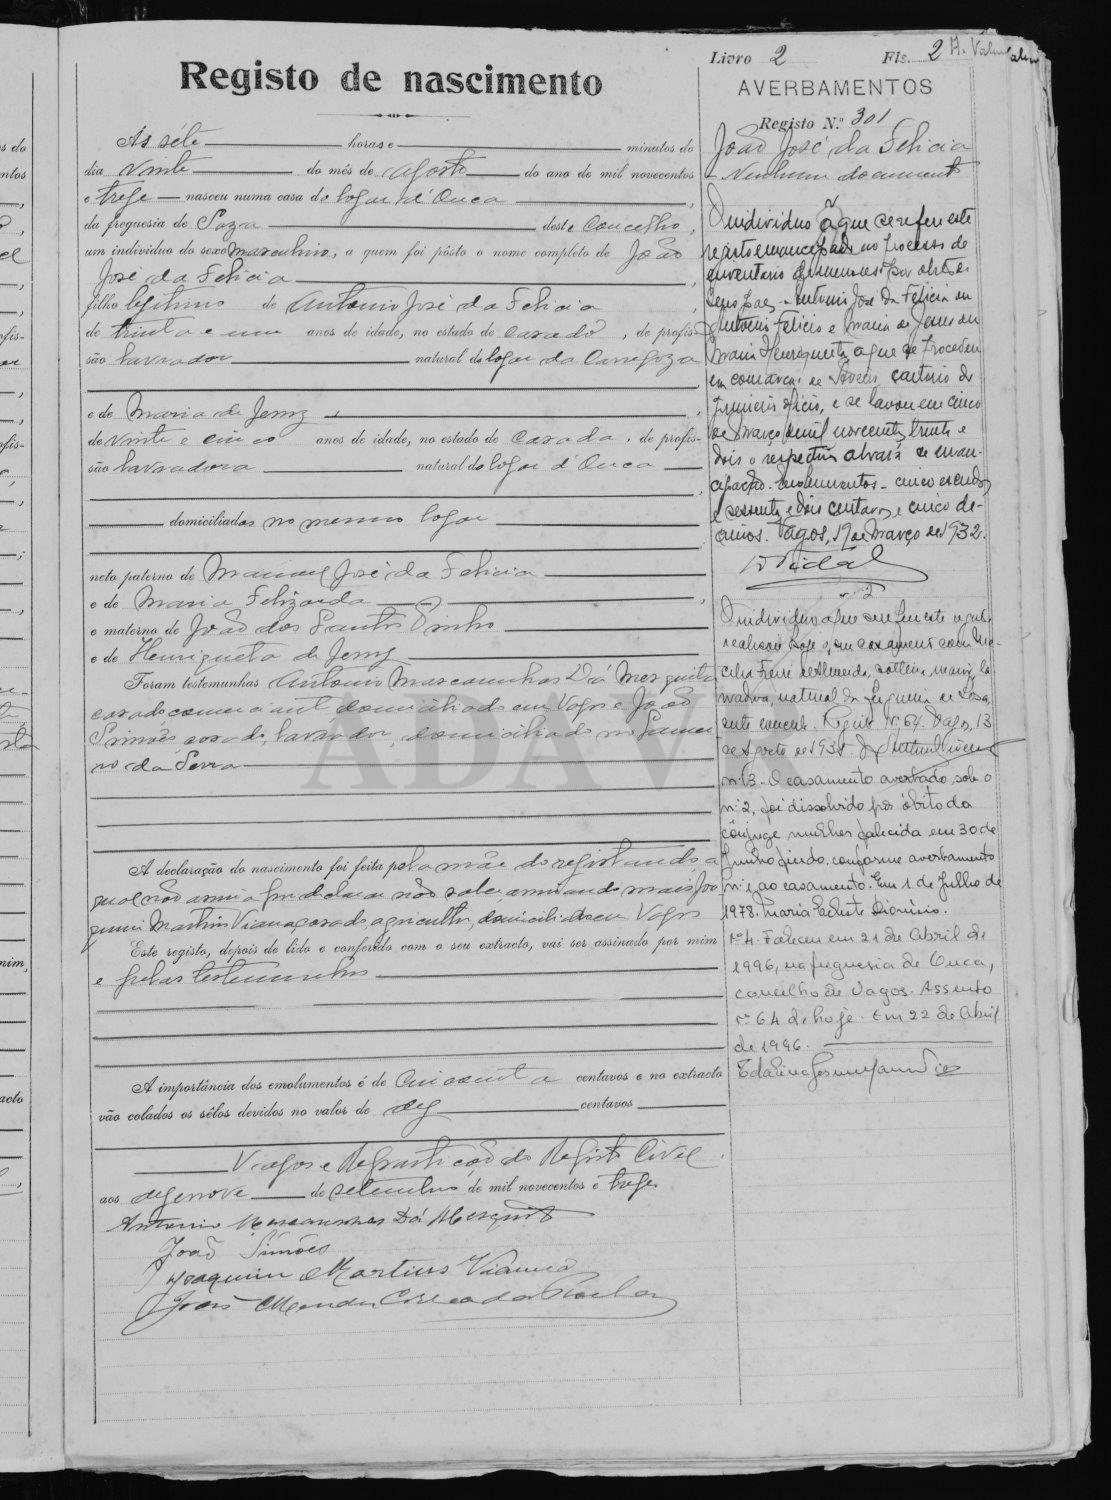 Livro 2 Fls. 2
Registo de nascimento
AVERBAMENTOS
Registo N.º 301
João José da Felicia
Nenhum documento
Ás séte horas e minutos do
dia vinte do mês de Agosto do ano de mil novecentos
e treze nasceu numa casa do logar d'Ouca
da freguesia de Soza deste Concelho,
um individuo do sexo masculino, a quem foi pôsto o nome completo de João
José da Felicia
filho legitimo de Antonio José da Felicia
de trinta e um anos de idade, no estado de casado, de profis-
são lavrador natural do logar da Carregoza
e de Maria de Jesus
de vinte e cinco anos de idade, no estado de casada, de profis-
são lavradora natural do logar d'Ouca
domiciliados no mesmo logar
neto paterno de Manuel José da Felicia
e de Maria Felizarda
e materno de João dos Santos
e de Henriqueta de Jesus
Foram testemunhas Antonio Mascarenhas Dá Mesquita
casado comerciante domiciliado em Vagos e João
Simões, casado, lavrador, domiciliado no
da Serra
A declaração do nascimento foi feita pela mãe do registando a
qual não assina por declarar não saber, assinando mais Joa
quim Martins Vianna casado, agricultor, domiciliado em Vagos
Este registo, depois de lido e conferido com o seu extracto, vai ser assinado por mim
e pelas testemunhas
A importância dos emolumentos é de Cincoenta centavos e no extracto
vão colados os sêlos devidos no valor de dez centavos
Vagos e Repartição do Registo Civil
aos dezenove de setembro de mil novecentos e treze
Antonio Mascarenhas Dá Mesquita
João Simões
Joaquim Martins Vianna
João Mendes Correa da Rocha
O individuo a que se refere este
registo emancipado no processo de
inventario de menores por obito de
seus paes Antonio José da Felicia ou
Antonio Felicio e Maria de Jesus ou
Maria Henriqueta a que se procedeu
em comarca de Aveiro, cartorio do
primeiro oficio, e se lavrou em cinco
de Março de mil novecentos trinta e
dois o respectivo alvará de eman-
cipação. Emolumentos - cinco escudos
e sessenta e dois centavos e cinco de-
cimos. Vagos, 19 de Março de 1932.
Vidal
nº 2
O individuo a que se refere este registo
realisou hoje o seu casamento com
Freire de Almeida, solteira, maior, la-
vradora, natural da freguesia de Soza,
deste concelho. Registo Nº 64. Vagos, 13
de Agosto de 1938.
nº 3 - O casamento averbado sob o
nº 2, foi dissolvido por óbito da
cônjuge mulher falecida em 30 de
Junho findo, conforme averbamento
nº 1, ao casamento. Em 1 de Julho de
1978. Maria Dionisio.
nº 4. Faleceu em 21 de Abril de
1996, na freguesia de Ouca,
concelho de Vagos. Assento
nº 64 de hoje. Em 22 de Abril
de 1996.
ADAVR